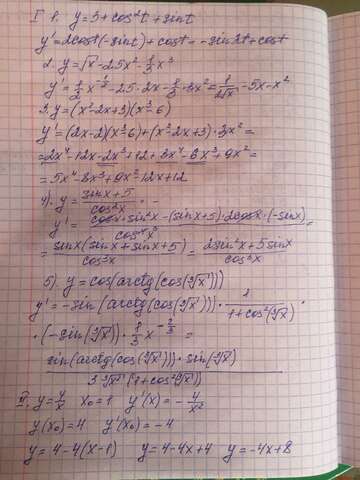 I 1. y = 3 + cos²t + sint
y' = 2cost(-sint) + cost = -sin2t + cost
2. y = √x - 2.5x² - 1/3 x³
y' = 1/2 x^(-1/2) - 2.5·2x - 1/3·3x² = 1/(2√x) - 5x - x²
3. y = (x² - 2x + 3)(x³ - 6)
y' = (2x-2)(x³-6) + (x²-2x+3)·3x² =
= 2x⁴ - 12x - 2x³ + 12 + 3x⁴ - 6x³ + 9x² =
= 5x⁴ - 8x³ + 9x² - 12x + 12
4) y = (sinx + 5)/cos²x
y' = (cosx·sin²x - (sinx+5)·2cosx·(-sinx))/cos⁴x =
= sinx(sinx + sinx + 5)/cos³x = (2sin²x + 5sinx)/cos³x
5) y = cos(arctg(cos(∛x)))
y' = -sin(arctg(cos(∛x)))· 1/(1+cos²(∛x)) ·
·(-sin(∛x))· 1/3 x^(-2/3) =
sin(arctg(cos(∛x)))·sin(∛x)
3∛x²(1+cos²(∛x))
II. y = 4/x x₀ = 1 y'(x) = -4/x²
y(x₀) = 4 y'(x₀) = -4
y = 4 - 4(x-1) y = 4 - 4x + 4 y = -4x + 8